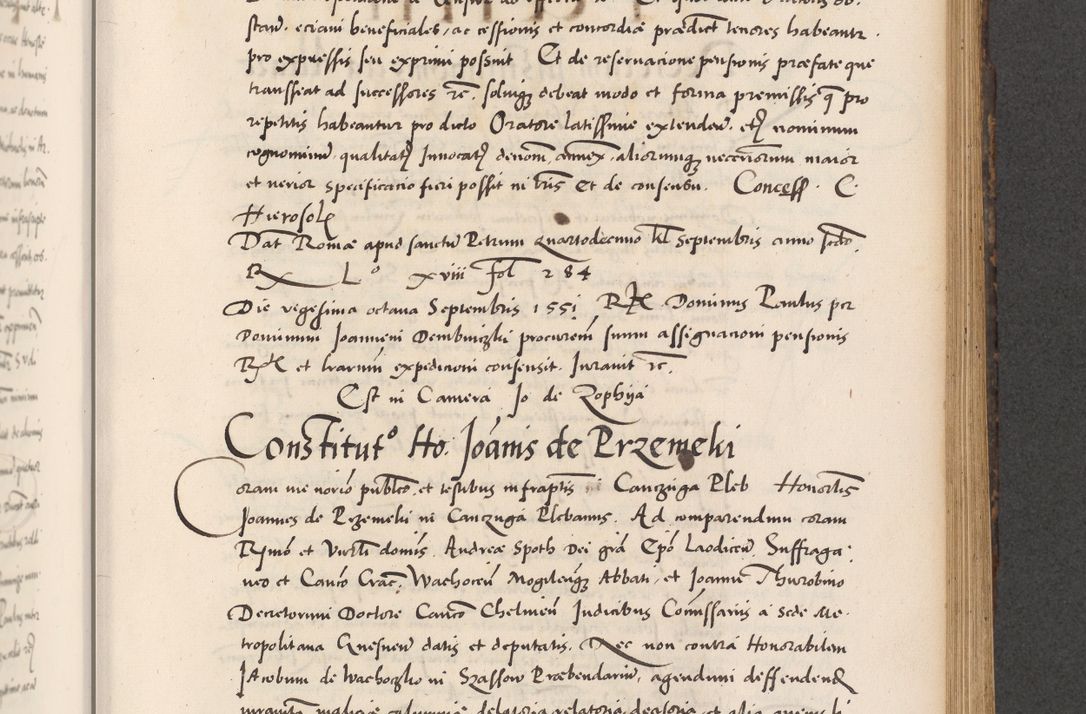 stan. eciam beneficiales, ac cessionis et concordiæ prædict tenores habeantr.
pro expressis seu exprimi possint Et de reservacione pensionis præfate que
transseat ad successores rc. solviq debeat modo et forma premissis q pro
repetitis habeantur pro dicto Oratore latissime extenden. etq nominum
cognominu. qualitatq Innocatq denom, annex. aliorumq neceriorum maior
et verior specificacio fieri possit in lris Et de consensu. Concess. C.
Hierosol
Dat Romæ apud sanctu Petrum quartodecimo kl Septembris anno scdo.
Rx L° xviii fol 284
Die vegesima octava Septembris 1551 Dominus Paulus per
Dominum Joannem Dembinczki procurem suum assignacioni pensionis
et lrarum expedicioni consensit. Juravit rc.
Est in Camera Jo de
Constitut° Ho. Joánis de Przemeki
Coram me notrio publico et testibus infraptis in Canczuga Pleb Honorlis
Joannes de Przemeki in Canczuga Plebanus. Ad comparendum coram
Rmo et domis. Andreæ Spoth Dei gra Epo Laodicen, Suffraga.
neo et Canco Crac. Wachocen Mogilenq Abbati, et Joanne Thurobino
Decretorum Doctore Canco Chelmen Judicibus Comissariis a Sede Me.
tropolitana Gnesnen datis et deputatis. Nec non contra Honorabilem
Jacobum de Wachoczko in Szassow Præbendariu, agendum deffendend
malicie calumnie delatoria relatoria et alia